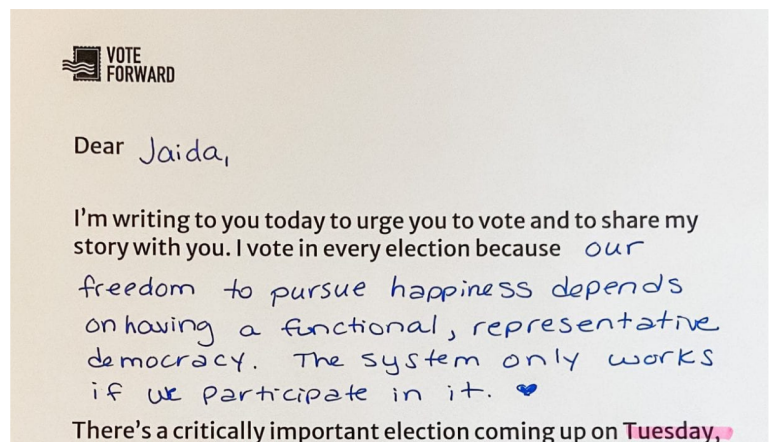 VOTE
FORWARD
Dear Jaida,
I'm writing to you today to urge you to vote and to share my
story with you. I vote in every election because our
freedom to pursue happiness depends
on having a functional, representative
democracy. The system only works
if we participate in it. ♥
There's a critically important election coming up on Tuesday,